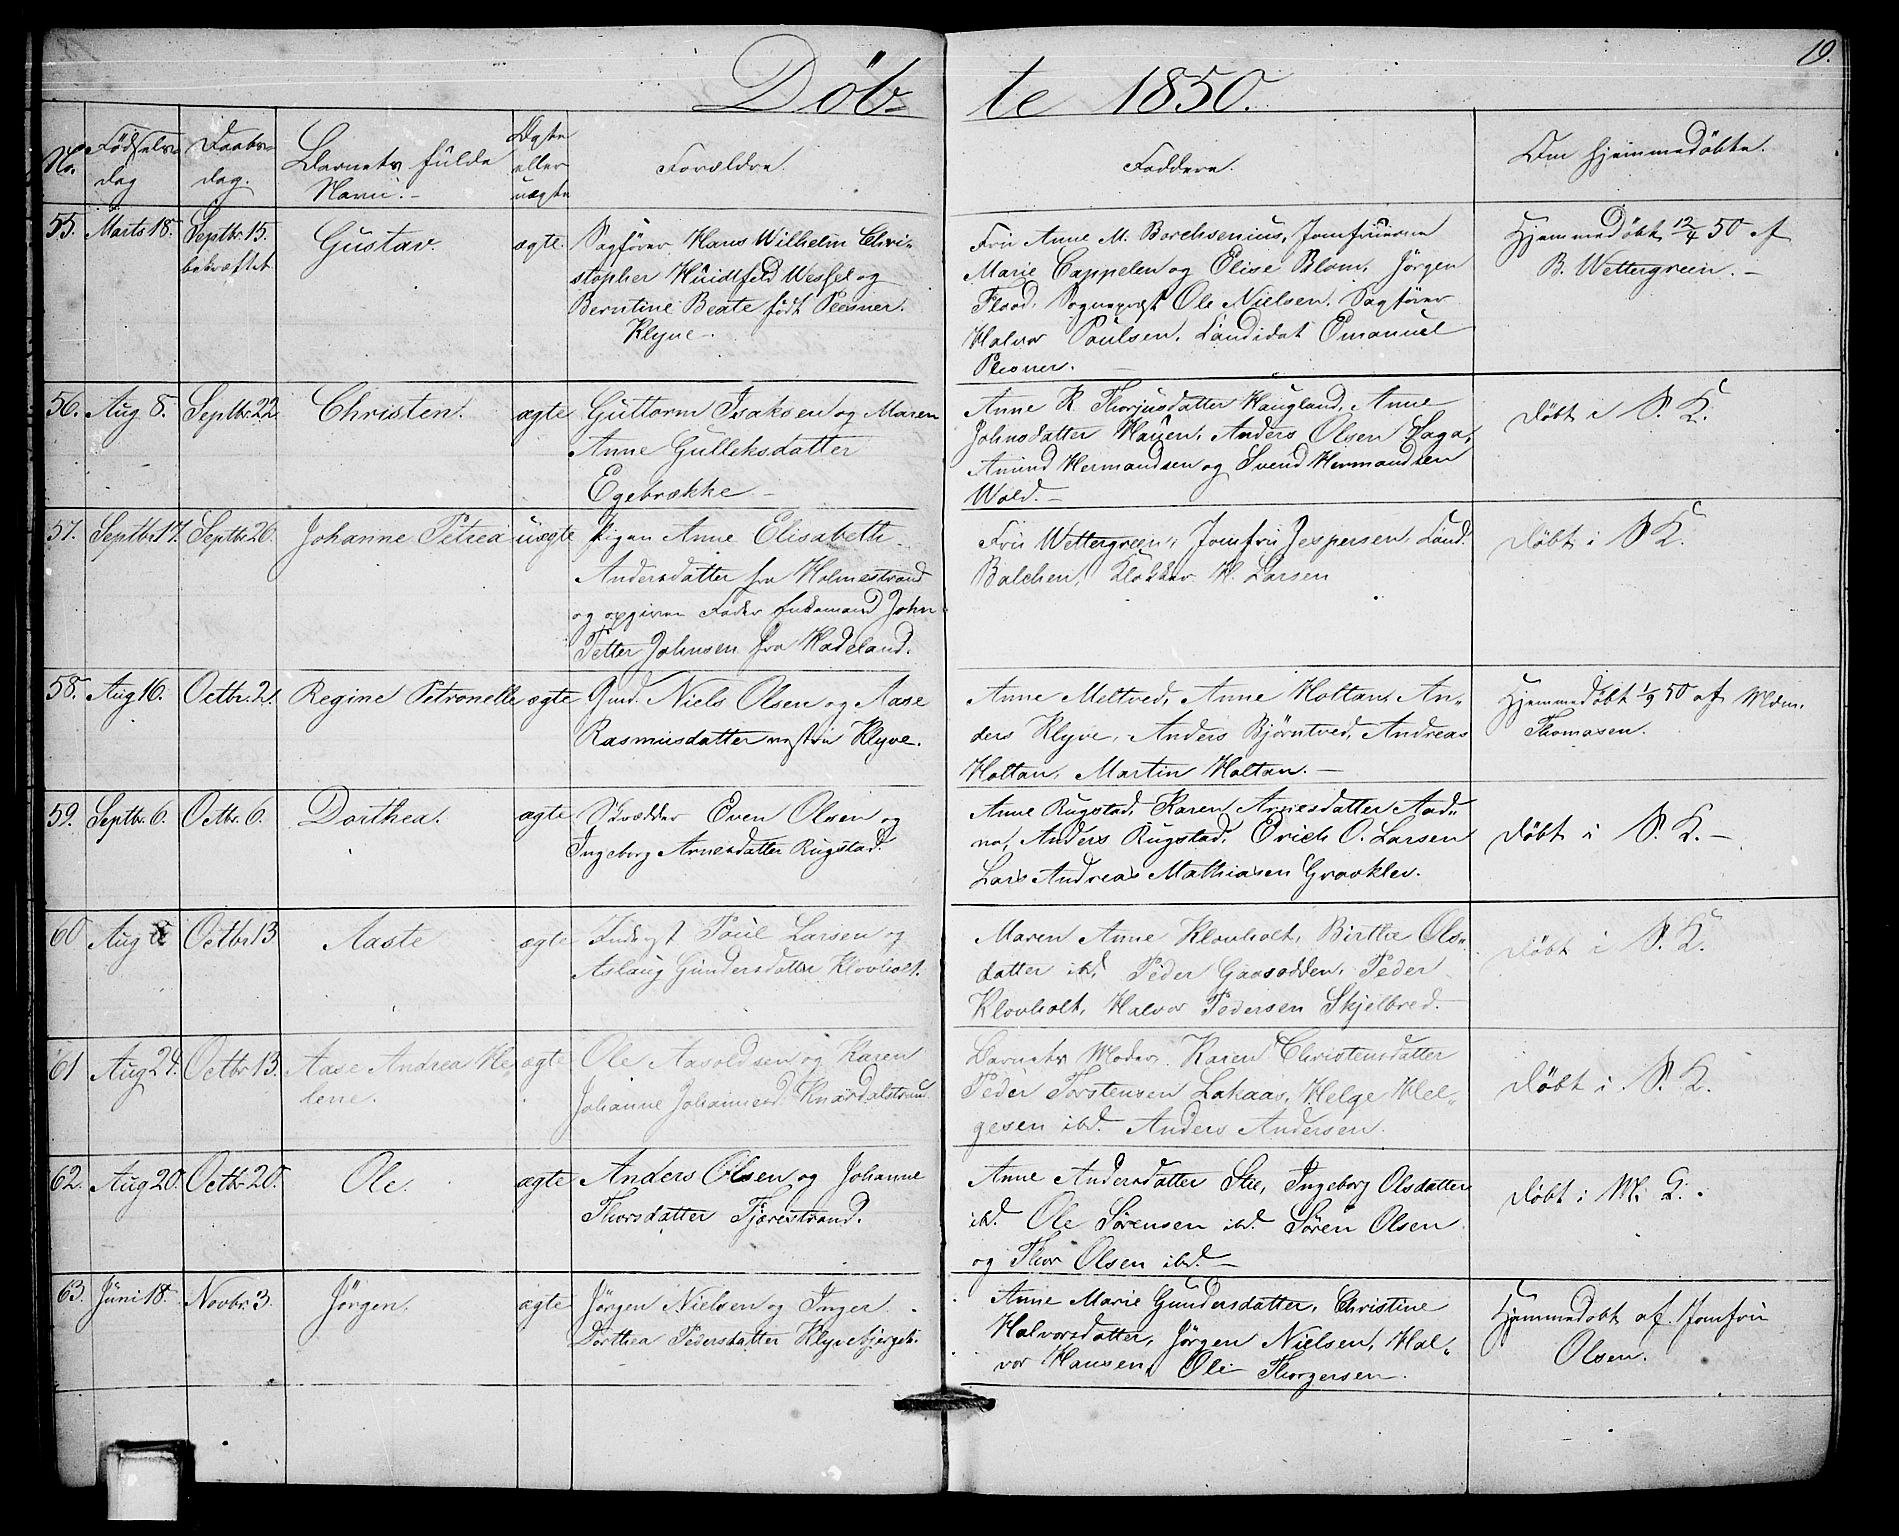 Döb-
te 1850.
19.
No.
Fødsels-
dag
Daabs-
dag.
Barnets fulde
Navn.
Ægte
eller
uægte
Forældre.
Faddere.
Om hjemmedøbte.
55. Marts 18. Septbr. 15. bekræftet
Gustav ægte.
Sagfører Hans Wilhelm Chri-
stopher Huidtfeld Wessel og
Berntine Beate født Plesner.
Klyve.
Fru Anne M. Borchsenius, Jomfruerne
Marie Cappelen og Elise Blom, Jörgen
Flood, Sognepræst Ole Nielsen, Sagfører
Halvor Paulsen, Candidat Emanuel
Plesner.
Hjemmedøbt 12/4 50 af
B. Wettergreen. -
56. Aug 8. Septbr. 22 Christen. ægte
Guttorm Isaksen og Maren
Anne Gulleksdatter
Egebrække -
Anne K. Thorjusdatter Haugland, Anne
Johnsdatter Hauen, Anders Olsen Haga,
Amund Hermandsen og Svend Hermandsen
Wold. -
døbt i P. K.
57. Septbr. 17. Septbr. 26. Johanne Petrea uægte
Pigen Anne Elisabeth
Andersdatter fra Holmestrand
og opgiven Fader Enkemand John
Petter Johnsen fra Hadeland.
Fru Wettergreen, Jomfru Jespersen, Cand.
Balchen, Klokker H. Larsen
døbt i P K.
58. Aug 16. Octbr. 2. Regine Petronelle ægte
Gmd. Niels Olsen og Aase
Rasmusdatter vestre Klyve.
Anne Meltved, Anne Holtan, An-
ders Klyve, Anders Björntved, Andreas
Holtan, Martin Holtan. -
Hjemmedøbt 1/9 50 af Mdm.
Thomasen.
59. Septbr. 6. Octbr. 6. Dorthea. ægte
Skrædder Even Olsen og
Ingeborg Arnesdatter Rugstad.
Anne Rugstad, Karen Arnesdatter Aad-
ne, Anders Rugstad, Erich O. Larsen
Lars Andreas Mathiasen Graaklev.
døbt i P. K. -
60 Aug Octbr 13 Aaste ægte
Inderst Poul Larsen og
Aslaug Gundersdatter Klovholt.
Maren Anne Klovholt, Birthe Ols-
datter ibd. Peder Gaasodden, Peder
Klovholt, Halvor Pedersen Skjelbred.
døbt i P. K.
61 Aug 24. Octbr. 13. Aase Andrea He- ægte
lene.
Ole Aasoldsen og Karen
Johanne Johannesd. Knardalstrand
Barnets Moder, Karen Christensdatter
Peder Torstensen Lakaas, Helge Hel-
gesen ibd. Anders Andersen.
døbt i P. K.
62. Aug 20. Octbr. 20. Ole. ægte
Anders Olsen og Johanne
Thorsdatter Tjærestrand.
Anne Andersdatter Stie, Ingeborg Olsdatter
ibd. Ole Sörensen ibd. Sören Olsen
og Thor Olsen ibd. -
døbt i M. K.
63. Juni 18. Novbr. 3. Jörgen. ægte
Jörgen Nielsen og Inger
Dorthea Pedersdatter Klyvebjerget.
Anne Marie Gundersdatter, Christine
Halvorsdatter, Jörgen Nielsen, Hal-
vor Hansen, Ole Thorgersen.
Hjemmedøbt af Jomfru
Olsen.